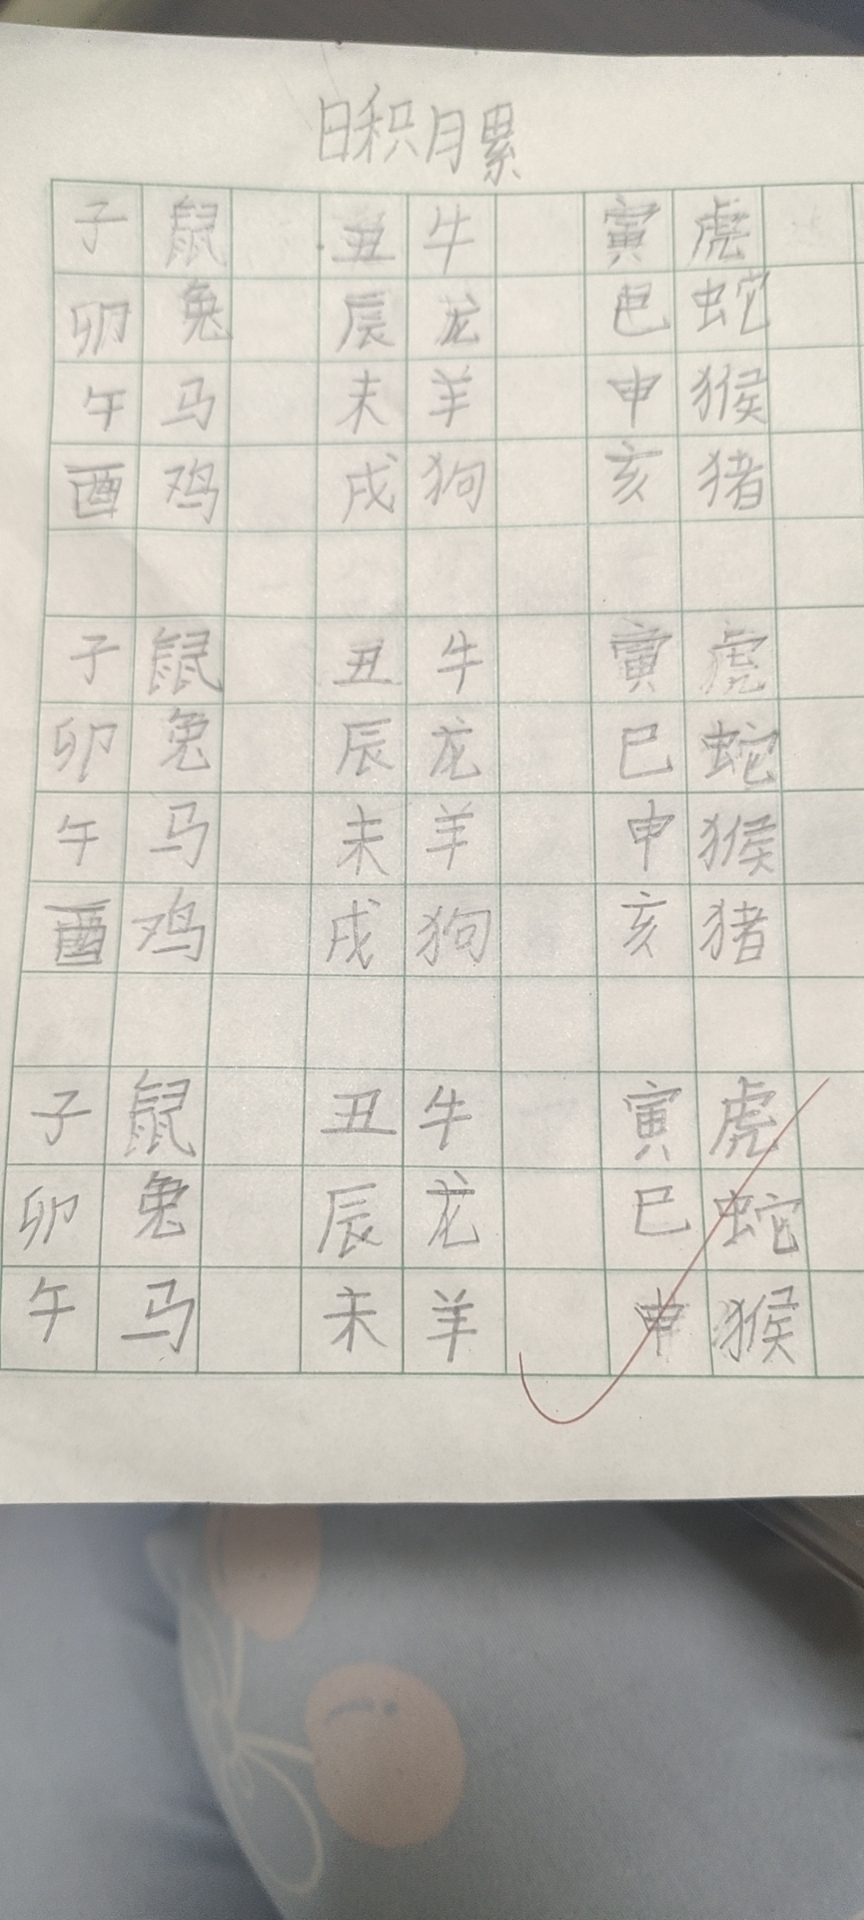 日积月累
子鼠 丑牛 寅虎
卯兔 辰龙 巳蛇
午马 未羊 申猴
酉鸡 戌狗 亥猪
子鼠 丑牛 寅虎
卯兔 辰龙 巳蛇
午马 未羊 申猴
酉鸡 戌狗 亥猪
子鼠 丑牛 寅虎
卯兔 辰龙 巳蛇
午马 未羊 申猴